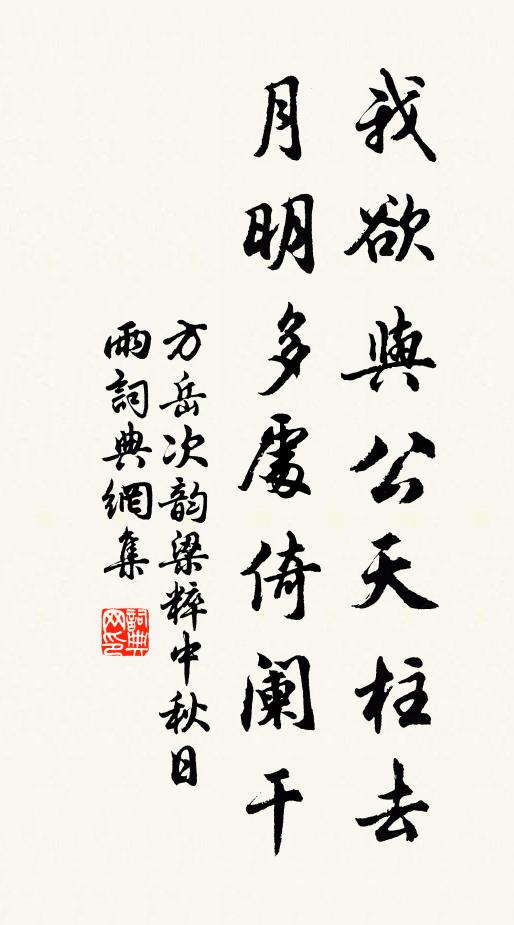 我欲與公天柱去
月明多處倚闌干
方岳次韵梁粹中秋日
雨詞典網集
詞典網印